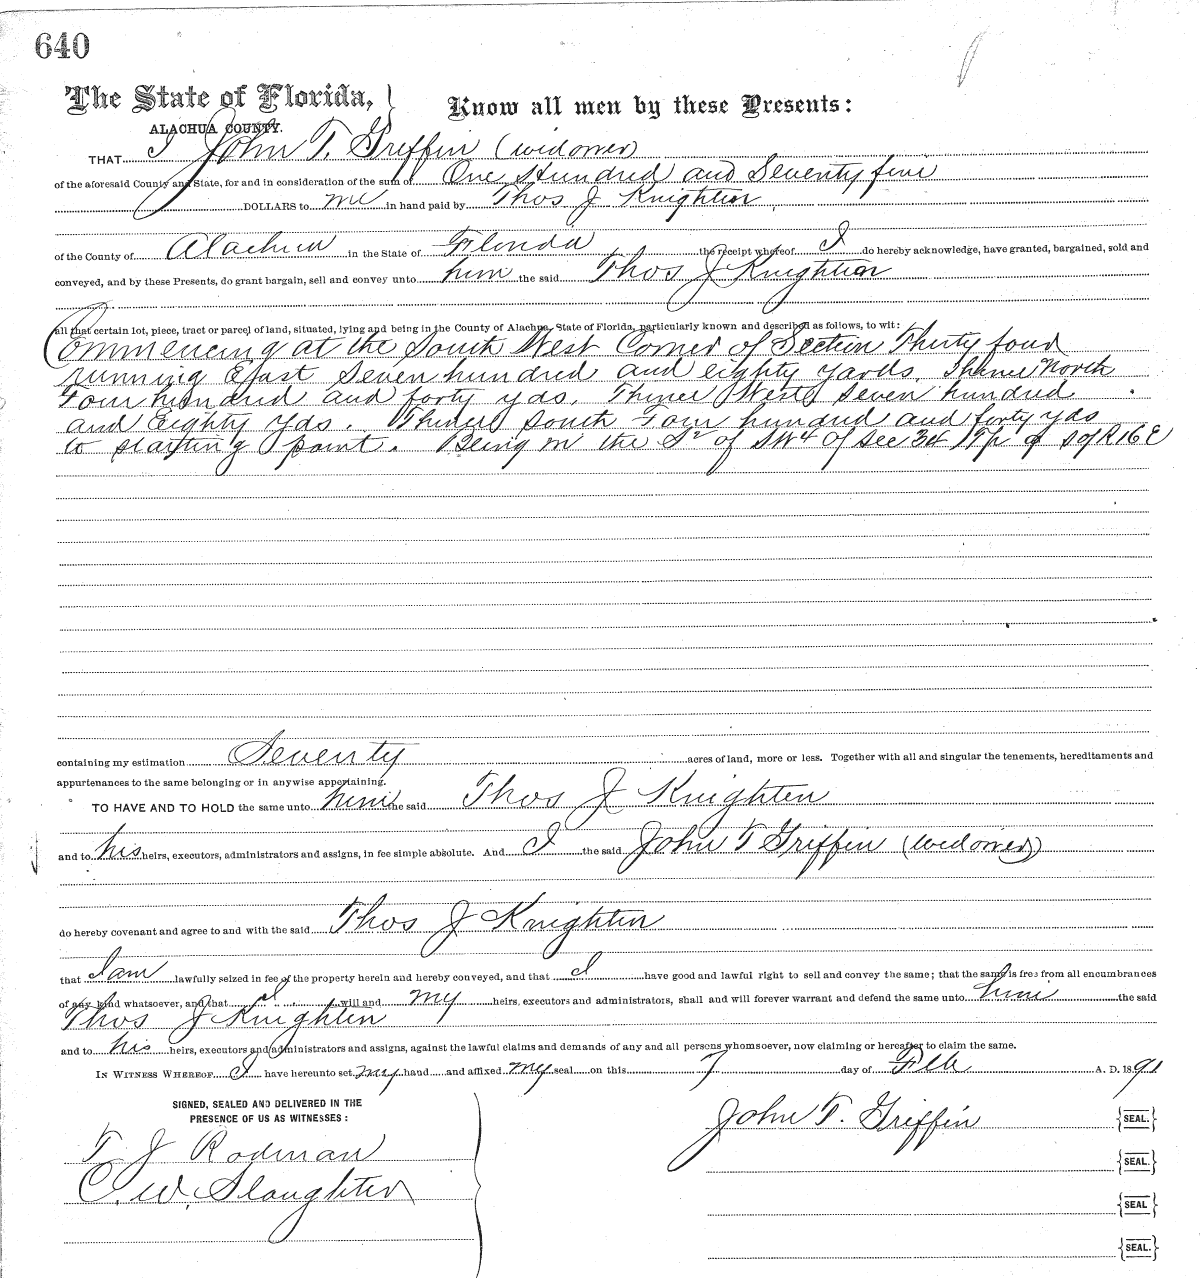 640
The State of Florida,
Know all men by these Presents:
ALACHUA COUNTY.
THAT I John T. Griffin (widower)
of the aforesaid County and State, for and in consideration of the sum of One Hundred and Seventy five
DOLLARS to me in hand paid by Thos J Knighten
of the County of Alachua in the State of Florida the receipt whereof I do hereby acknowledge, have granted, bargained, sold and
conveyed, and by these Presents, do grant bargain, sell and convey unto him the said Thos J Knighten
all that certain lot, piece, tract or parcel of land, situated, lying and being in the County of Alachua, State of Florida, particularly known and described as follows, to wit:
Commencing at the South West Corner of Section Thirty four
running East Seven hundred and eighty yards. Thence North
Four hundred and forty yds. Thence West Seven hundred
and Eighty yds. Thence South Four hundred and forty yds
to starting point. Being in the S2 of SW4 of Sec 34 Tp 9 S of R 16 E
containing my estimation Seventy acres of land, more or less. Together with all and singular the tenements, hereditaments and
appurtenances to the same belonging or in anywise appertaining.
TO HAVE AND TO HOLD the same unto him the said Thos J Knighten
and to his heirs, executors, administrators and assigns, in fee simple absolute. And I the said John T Griffin (widower)
do hereby covenant and agree to and with the said Thos J Knighten
that I am lawfully seized in fee of the property herein and hereby conveyed, and that I have good and lawful right to sell and convey the same; that the same is free from all encumbrances
of any kind whatsoever, and that I will and my heirs, executors and administrators, shall and will forever warrant and defend the same unto him the said
Thos J Knighten
and to his heirs, executors and administrators and assigns, against the lawful claims and demands of any and all persons whomsoever, now claiming or hereafter to claim the same.
IN WITNESS WHEREOF I have hereunto set my hand and affixed my seal on this 7 day of Feb A. D. 1891
SIGNED, SEALED AND DELIVERED IN THE
PRESENCE OF US AS WITNESSES:
John T. Griffin SEAL.
T J Rodman
SEAL.
C. W. Slaughter
SEAL
SEAL.